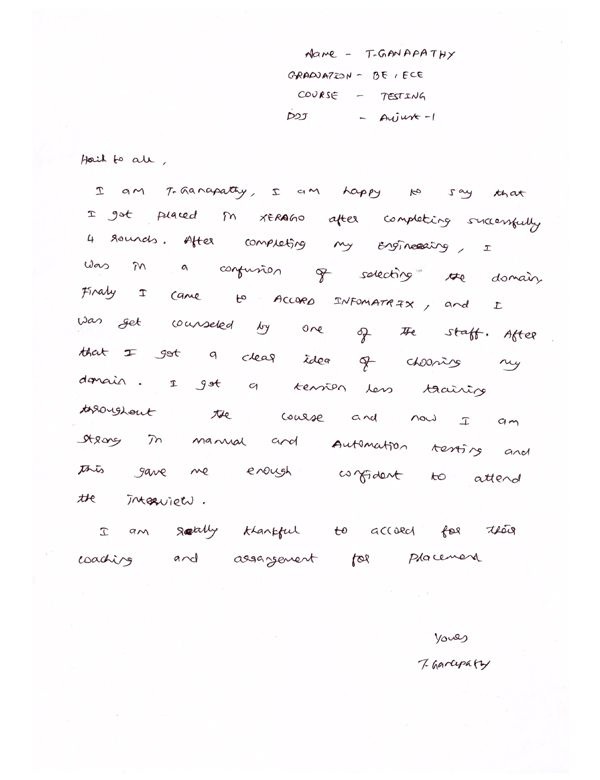 Name - T-GANAPATHY
GRADUATION - BE, ECE
COURSE - TESTING
DOJ - August -1
Hail to all,
I am T-Ganapathy, I am happy to say that
I got placed in XERAGO after completing successfully
4 rounds. After completing my Engineering, I
was in a confusion of selecting the domain.
Finaly I came to ACCORD INFOMATRIX, and I
was get counseled by one of the staff. After
that I got a clear idea of choosing my
domain. I got a tension less training
throughout the course and now I am
strong in manual and Automation testing and
this gave me enough confident to attend
the interview.
I am really thankful to accord for their
coaching and arrangement for placement
Yours
T. Ganapathy